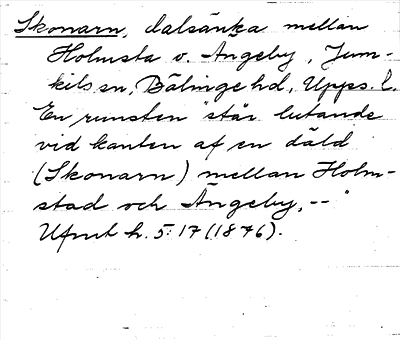 Skonarn, dalsänka mellan
Holmsta o. Ängeby, Jum-
kils sn, Bälinge hd, Upps. l.
En runsten "står lutande
vid kanten af en däld
(Skonarn) mellan Holm-
stad och Ängeby, --"
Ufmt h. 5:17 (1876).